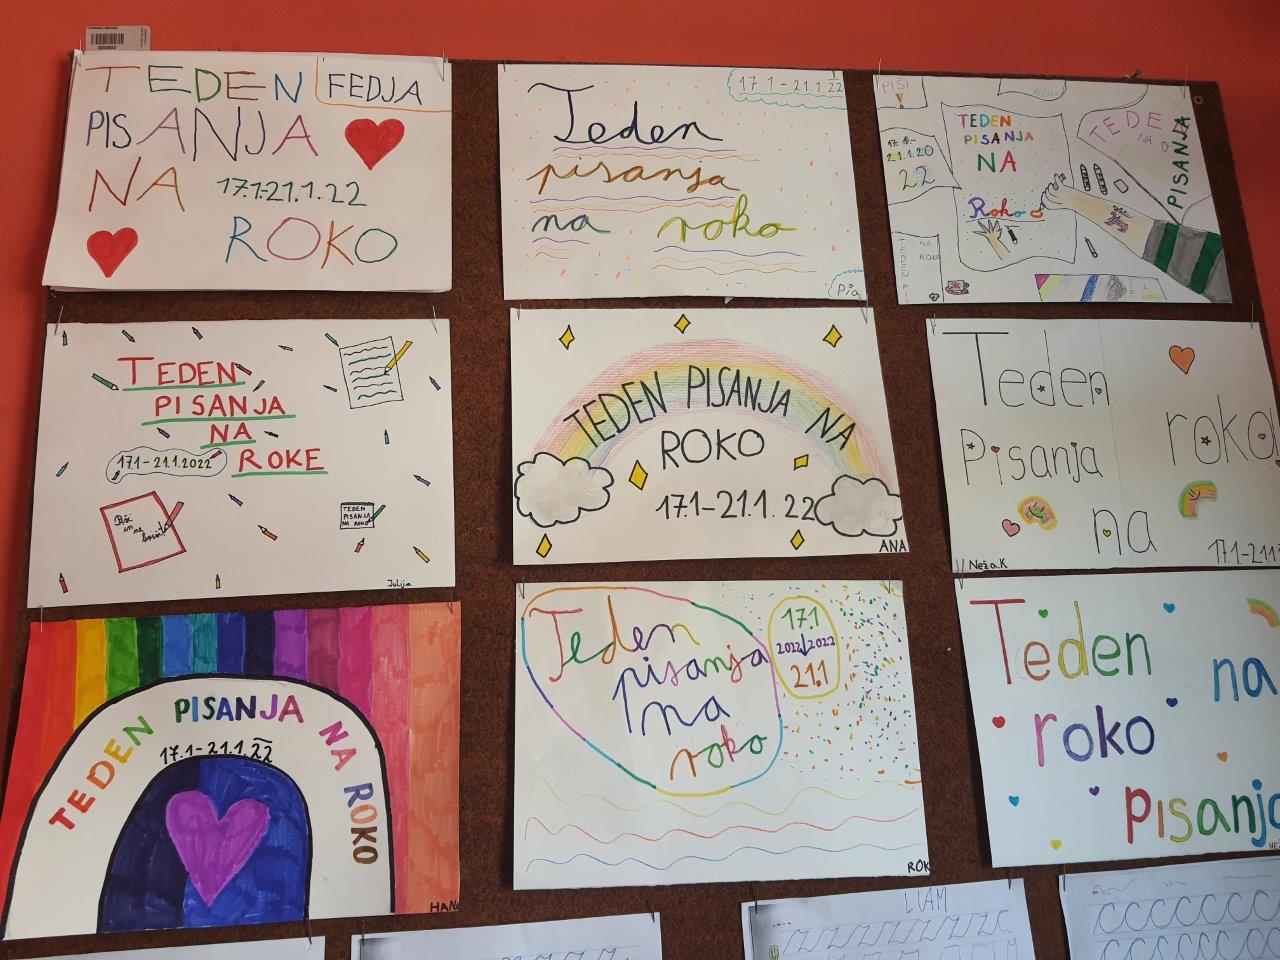 000803
TEDEN
FEDJA
PISANJA
NA
17.1-21.1.22
ROKO
Teden
17.1-21.1.22
pisanja
na roko
Pia
PIŠI
17.1.-
21.1.20
22
TEDEN
PISANJA
NA
Roko
TEDE
NA
PISANJA
TEDEN
NA
ROKO
TEDEN
PISANJA
NA
17.1-21.1.2022
ROKE
Piši
in ne
TEDEN
PISANJA
NA ROKO
Julija
TEDEN PISANJA NA
ROKO
17.1-21.1.22
ANA
Teden
Pisanja
roko
na
17.1-21.1
Neža.K
TEDEN PISANJA NA ROKO
17.1-21.1.22
HANA
Teden
pisanja
na
roko
17.1
2022 2022
21.1
ROK
Teden
na
roko
pisanja
LIAM